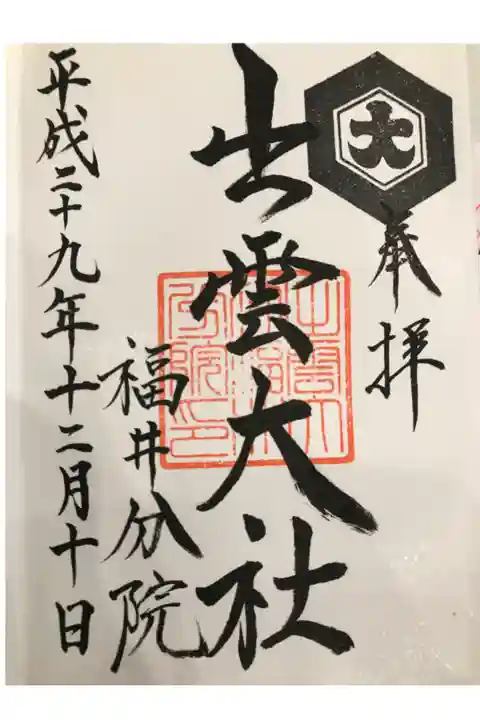 大
奉拝
出雲大社
福井分院
平成二十九年十二月十日